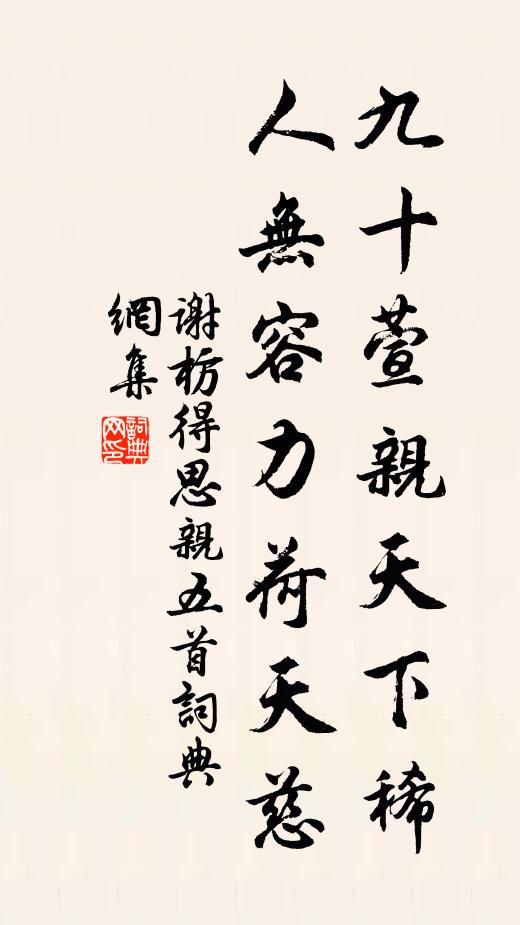 九十萱親天下稀
人無容力荷天慈
谢枋得思親五首詞典
網集
詞典網印